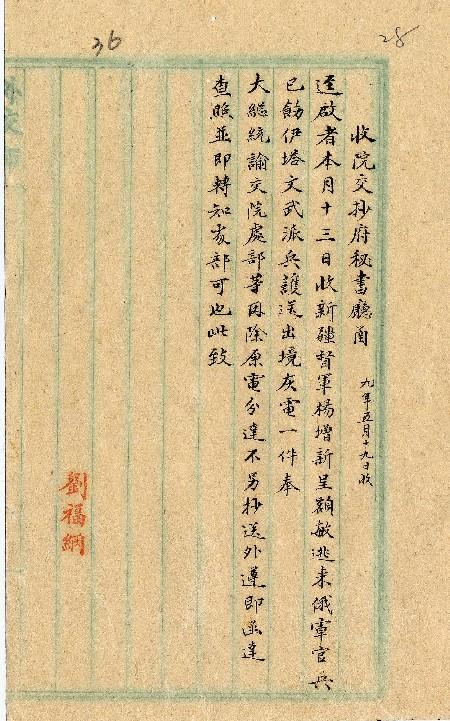 36
28
收院交抄府秘書廳函
九年五月十九日收
逕啟者本月十三日收新疆督軍楊增新呈額敏逃來俄軍官兵
已飭伊塔文武派兵護送出境灰電一件奉
大總統諭交院處部等因除原電分達不另抄送外遵即函達
查照並即轉知貴部可也此致
劉福綱